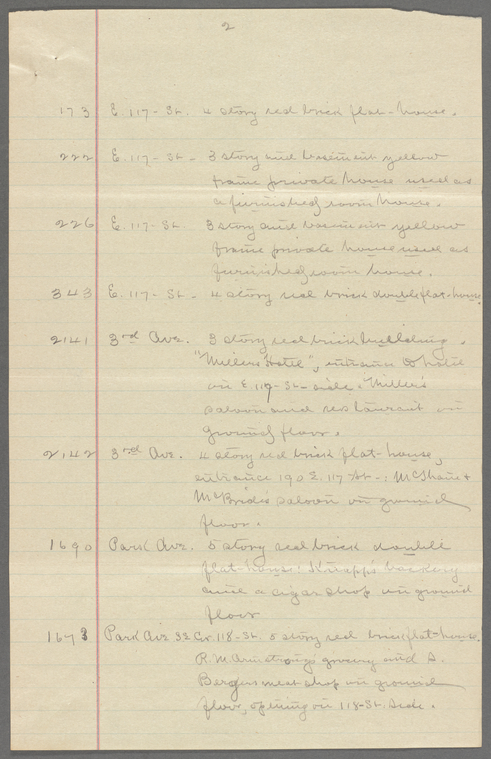 2
173 E. 117-St. 4 story red brick flat-house.
222 E. 117-St- 3 story and basement yellow
frame private house used as
a furnished room house.
226 E. 117-St. 3 story and basement yellow
frame private house used as
furnished room house.
343 E. 117-St- 4 story red brick double flat-house
2141 3rd Ave. 3 story red brick building.
"Millers Hotel", entrance to hotel
on E 117-St-side. Miller's
saloon and restaurant on
ground floor.
2142 3rd Ave. 4 story red brick flat-house,
entrance 190 E. 117 St-; McShane &
McBride's saloon on ground
floor.
1690 Park Ave. 5 story red brick double
flat-house; Knapp's bakery
and a cigar shop on ground
floor
1673 Park Ave. SE Cr. 118-St. 5 story red brick flat-house.
R.M. Armstrong's grocery and S.
Bergers meat shop on ground
floor, opening on 118-St. side.